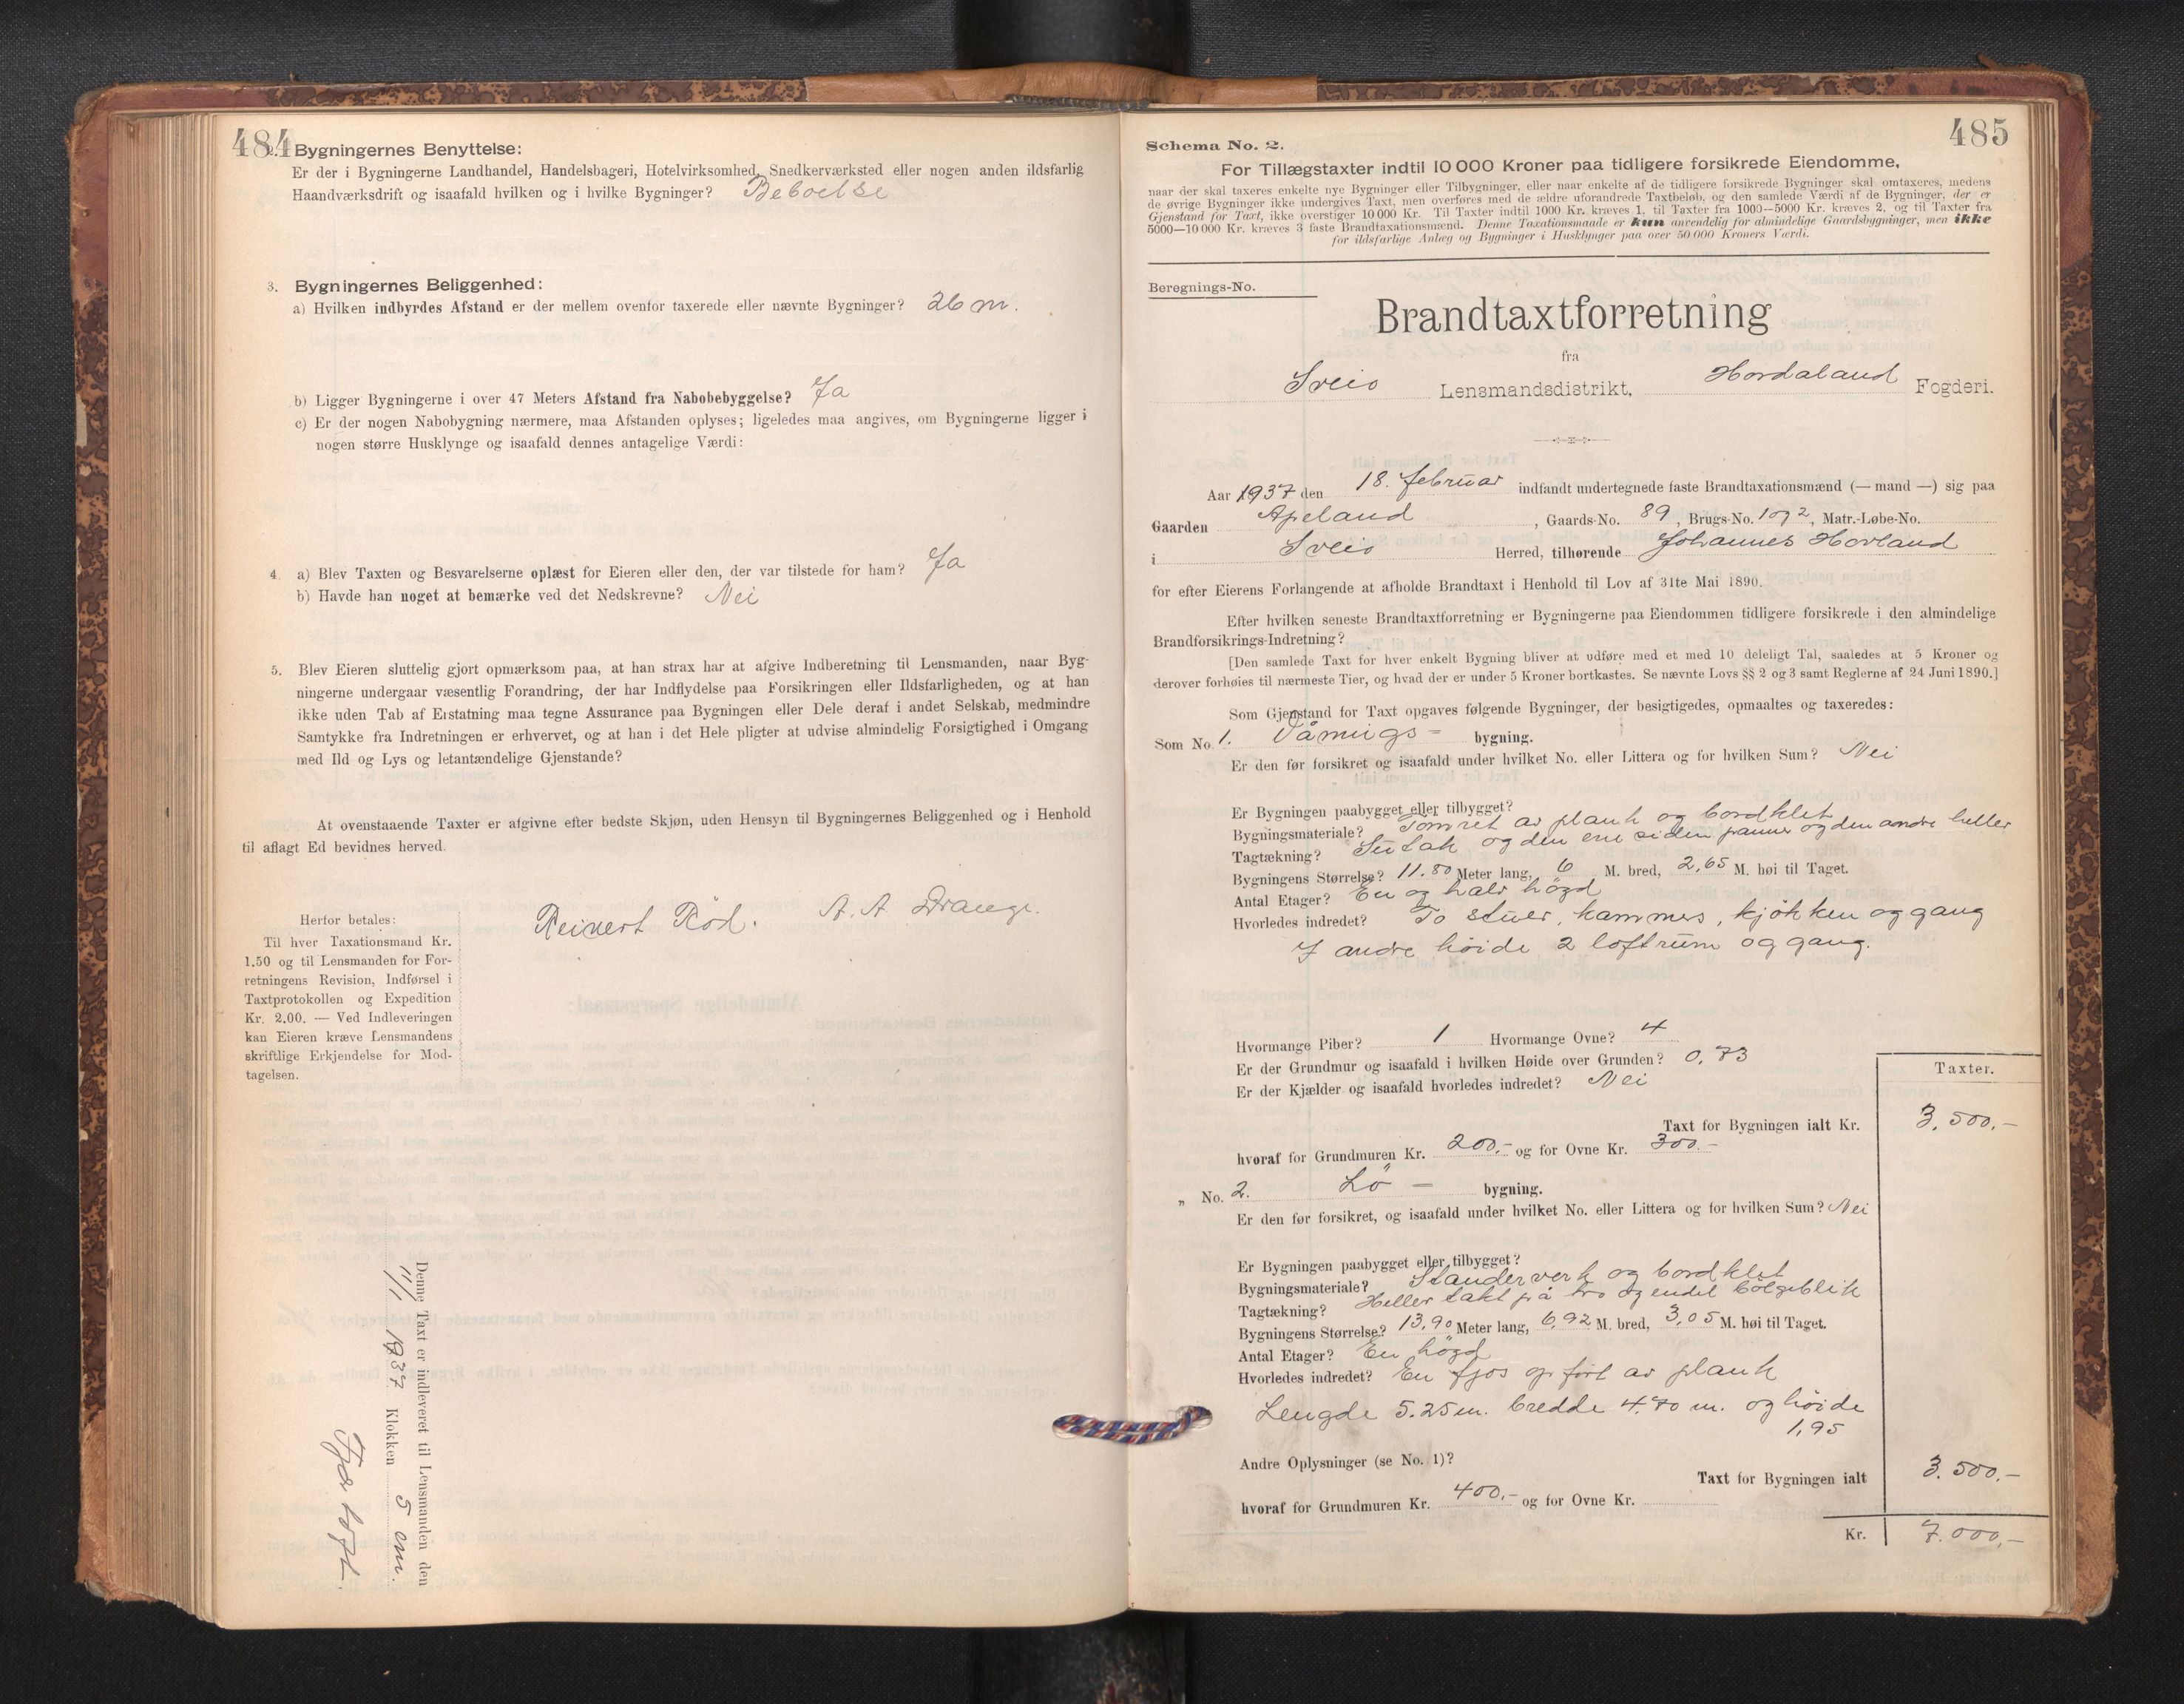 484
2. Bygningernes Benyttelse:
Er der i Bygningerne Landhandel, Handelsbageri, Hotelvirksomhed, Snedkerværksted eller nogen anden ildsfarlig
Haandværksdrift og isaafald hvilken og i hvilke Bygninger? Beboelse
3. Bygningernes Beliggenhed:
a) Hvilken indbyrdes Afstand er der mellem ovenfor taxerede eller nævnte Bygninger? 26 m.
b) Ligger Bygningerne i over 47 Meters Afstand fra Nabobebyggelse? Ja
c) Er der nogen Nabobygning nærmere, maa Afstanden oplyses; ligeledes maa angives, om Bygningerne ligger i
nogen større Husklynge og isaafald dennes antagelige Værdi:
4. a) Blev Taxten og Besvarelserne oplæst for Eieren eller den, der var tilstede for ham? Ja
b) Havde han noget at bemærke ved det Nedskrevne? Nei
5. Blev Eieren sluttelig gjort opmærksom paa, at han strax har at afgive Indberetning til Lensmanden, naar Byg-
ningerne undergaar væsentlig Forandring, der har Indflydelse paa Forsikringen eller Ildsfarligheden, og at han
ikke uden Tab af Erstatning maa tegne Assurance paa Bygningen eller Dele deraf i andet Selskab, medmindre
Samtykke fra Indretningen er erhvervet, og at han i det Hele pligter at udvise almindelig Forsigtighed i Omgang
med Ild og Lys og letantændelige Gjenstande?
At ovenstaaende Taxter er afgivne efter bedste Skjøn, uden Hensyn til Bygningernes Beliggenhed og i Henhold
til aflagt Ed bevidnes herved.
Reinert Röd. A. A. Drange.
Herfor betales:
Til hver Taxationsmand Kr.
1.50 og til Lensmanden for For-
retningens Revision, Indførsel i
Taxtprotokollen og Expedition
Kr. 2,00. — Ved Indleveringen
kan Eieren kræve Lensmandens
skriftlige Erkjendelse for Mod-
tagelsen.
Denne Taxt er indleveret til Lensmanden den
11/1 1937 Klokken 5 em.
485
Schema No. 2.
For Tillægstaxter indtil 10 000 Kroner paa tidligere forsikrede Eiendomme,
naar der skal taxeres enkelte nye Bygninger eller Tilbygninger, eller naar enkelte af de tidligere forsikrede Bygninger skal omtaxeres, medens
de øvrige Bygninger ikke undergives Taxt, men overføres med de ældre uforandrede Taxtbeløb, og den samlede Værdi af de Bygninger, der er
Gjenstand for Taxt, ikke overstiger 10 000 Kr. Til Taxter indtil 1000 Kr. kræves 1, til Taxter fra 1000—5000 Kr. kræves 2, og til Taxter fra
5000—10 000 Kr. kræves 3 faste Brandtaxationsmænd. Denne Taxationsmaade er kun anvendelig for almindelige Gaardsbygninger, men ikke
for ildsfarlige Anlæg og Bygninger i Husklynger paa over 50 000 Kroners Værdi.
Beregnings-No.
Brandtaxtforretning
fra
Sveio Lensmandsdistrikt, Hordaland Fogderi.
Aar 1937 den 18. februar indfandt undertegnede faste Brandtaxationsmænd (— mand —) sig paa
Gaarden Apeland, Gaards-No. 89, Brugs-No. 1 og 2, Matr.-Løbe-No.
i Sveio Herred, tilhørende Johannes Hovland
for efter Eierens Forlangende at afholde Brandtaxt i Henhold til Lov af 31te Mai 1890.
Efter hvilken seneste Brandtaxtforretning er Bygningerne paa Eiendommen tidligere forsikrede i den almindelige
Brandforsikrings-Indretning?
[Den samlede Taxt for hver enkelt Bygning bliver at udføre med et med 10 deleligt Tal, saaledes at 5 Kroner og
derover forhøies til nærmeste Tier, og hvad der er under 5 Kroner bortkastes. Se nævnte Lovs §§ 2 og 3 samt Reglerne af 24 Juni 1890.]
Som Gjenstand for Taxt opgaves følgende Bygninger, der besigtigedes, opmaaltes og taxeredes:
Som No. 1. Vånings- bygning.
Er den før forsikret og isaafald under hvilket No. eller Littera og for hvilken Sum? Nei
Er Bygningen paabygget eller tilbygget?
Bygningsmateriale? Tömret av plank og bordklet
Tagtækning? Sutak og den ene siden panner og den andre heller
Bygningens Størrelse? 11.80 Meter lang, 6 M. bred, 2,65 M. høi til Taget.
Antal Etager? En og halv högd
Hvorledes indredet? To stuer, kammers, kjökken og gang
I andre höide 2 loftrum og gang.
Hvormange Piber? 1 Hvormange Ovne? 4
Er der Grundmur og isaafald i hvilken Høide over Grunden? 0,73
Er der Kjælder og isaafald hvorledes indredet? Nei
Taxter.
Taxt for Bygningen ialt Kr. 3,500.-
hvoraf for Grundmuren Kr. 200.- og for Ovne Kr. 300.-
„ No. 2. Lö - bygning.
Er den før forsikret, og isaafald under hvilket No. eller Littera og for hvilken Sum? Nei
Er Bygningen paabygget eller tilbygget?
Bygningsmateriale? Standerverk og bordklet
Tagtækning? Heller takt på tro og endel bölgeblik
Bygningens Størrelse? 13,90 Meter lang, 6,92 M. bred, 3,05 M. høi til Taget.
Antal Etager? En högd
Hvorledes indredet? En fjos opfört av plank
Lengde 5.25 m. bredde 4.70 m. og höide
1,95
Andre Oplysninger (se No. 1)?
Taxt for Bygningen ialt 3.500.-
hvoraf for Grundmuren Kr. 400.- og for Ovne Kr.
Kr. 7.000.-